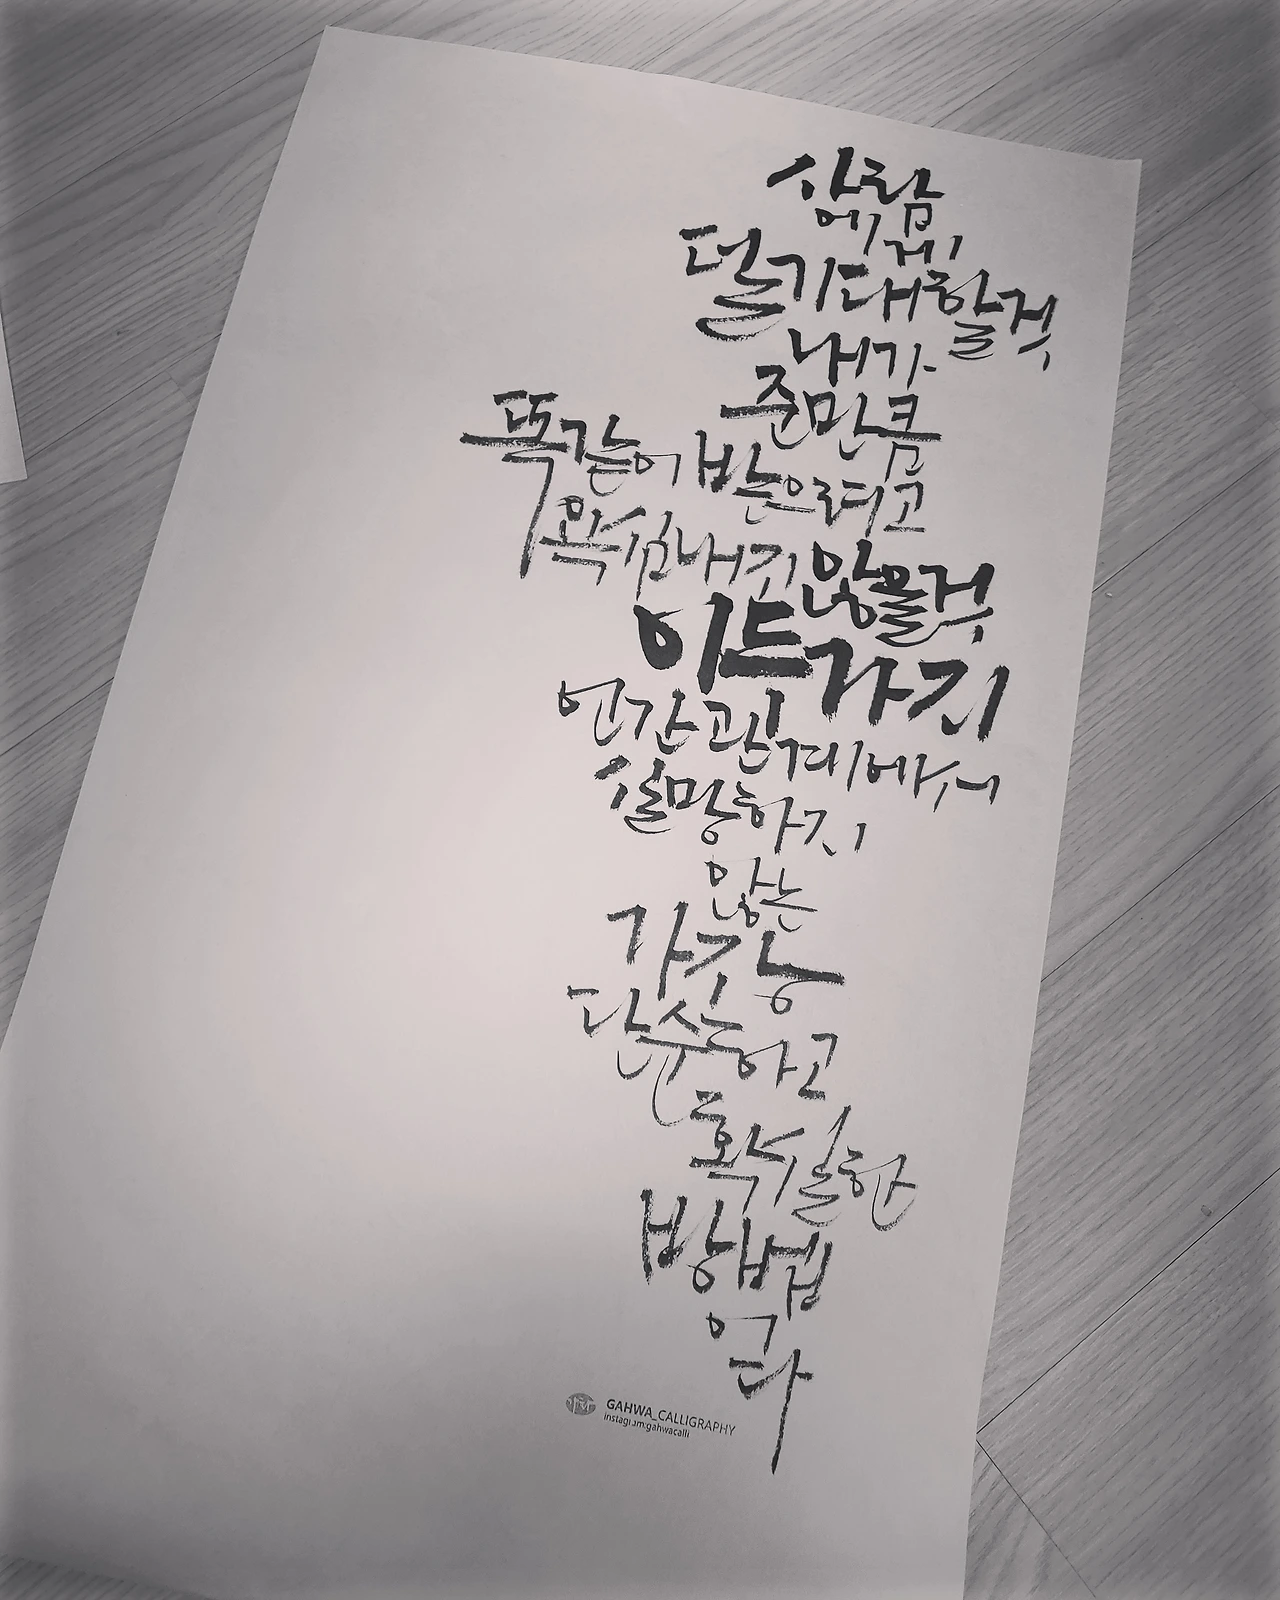 사람
에게
덜 기대할 것
내가
준 만큼
똑같이 받으려고
욕심내지 않을 것
이 두 가지
인간관계에서
실망하지
않는
가장
단순하고
확실한
방법
이다
GAHWA_CALLIGRAPHY
instagram:gahwacalli